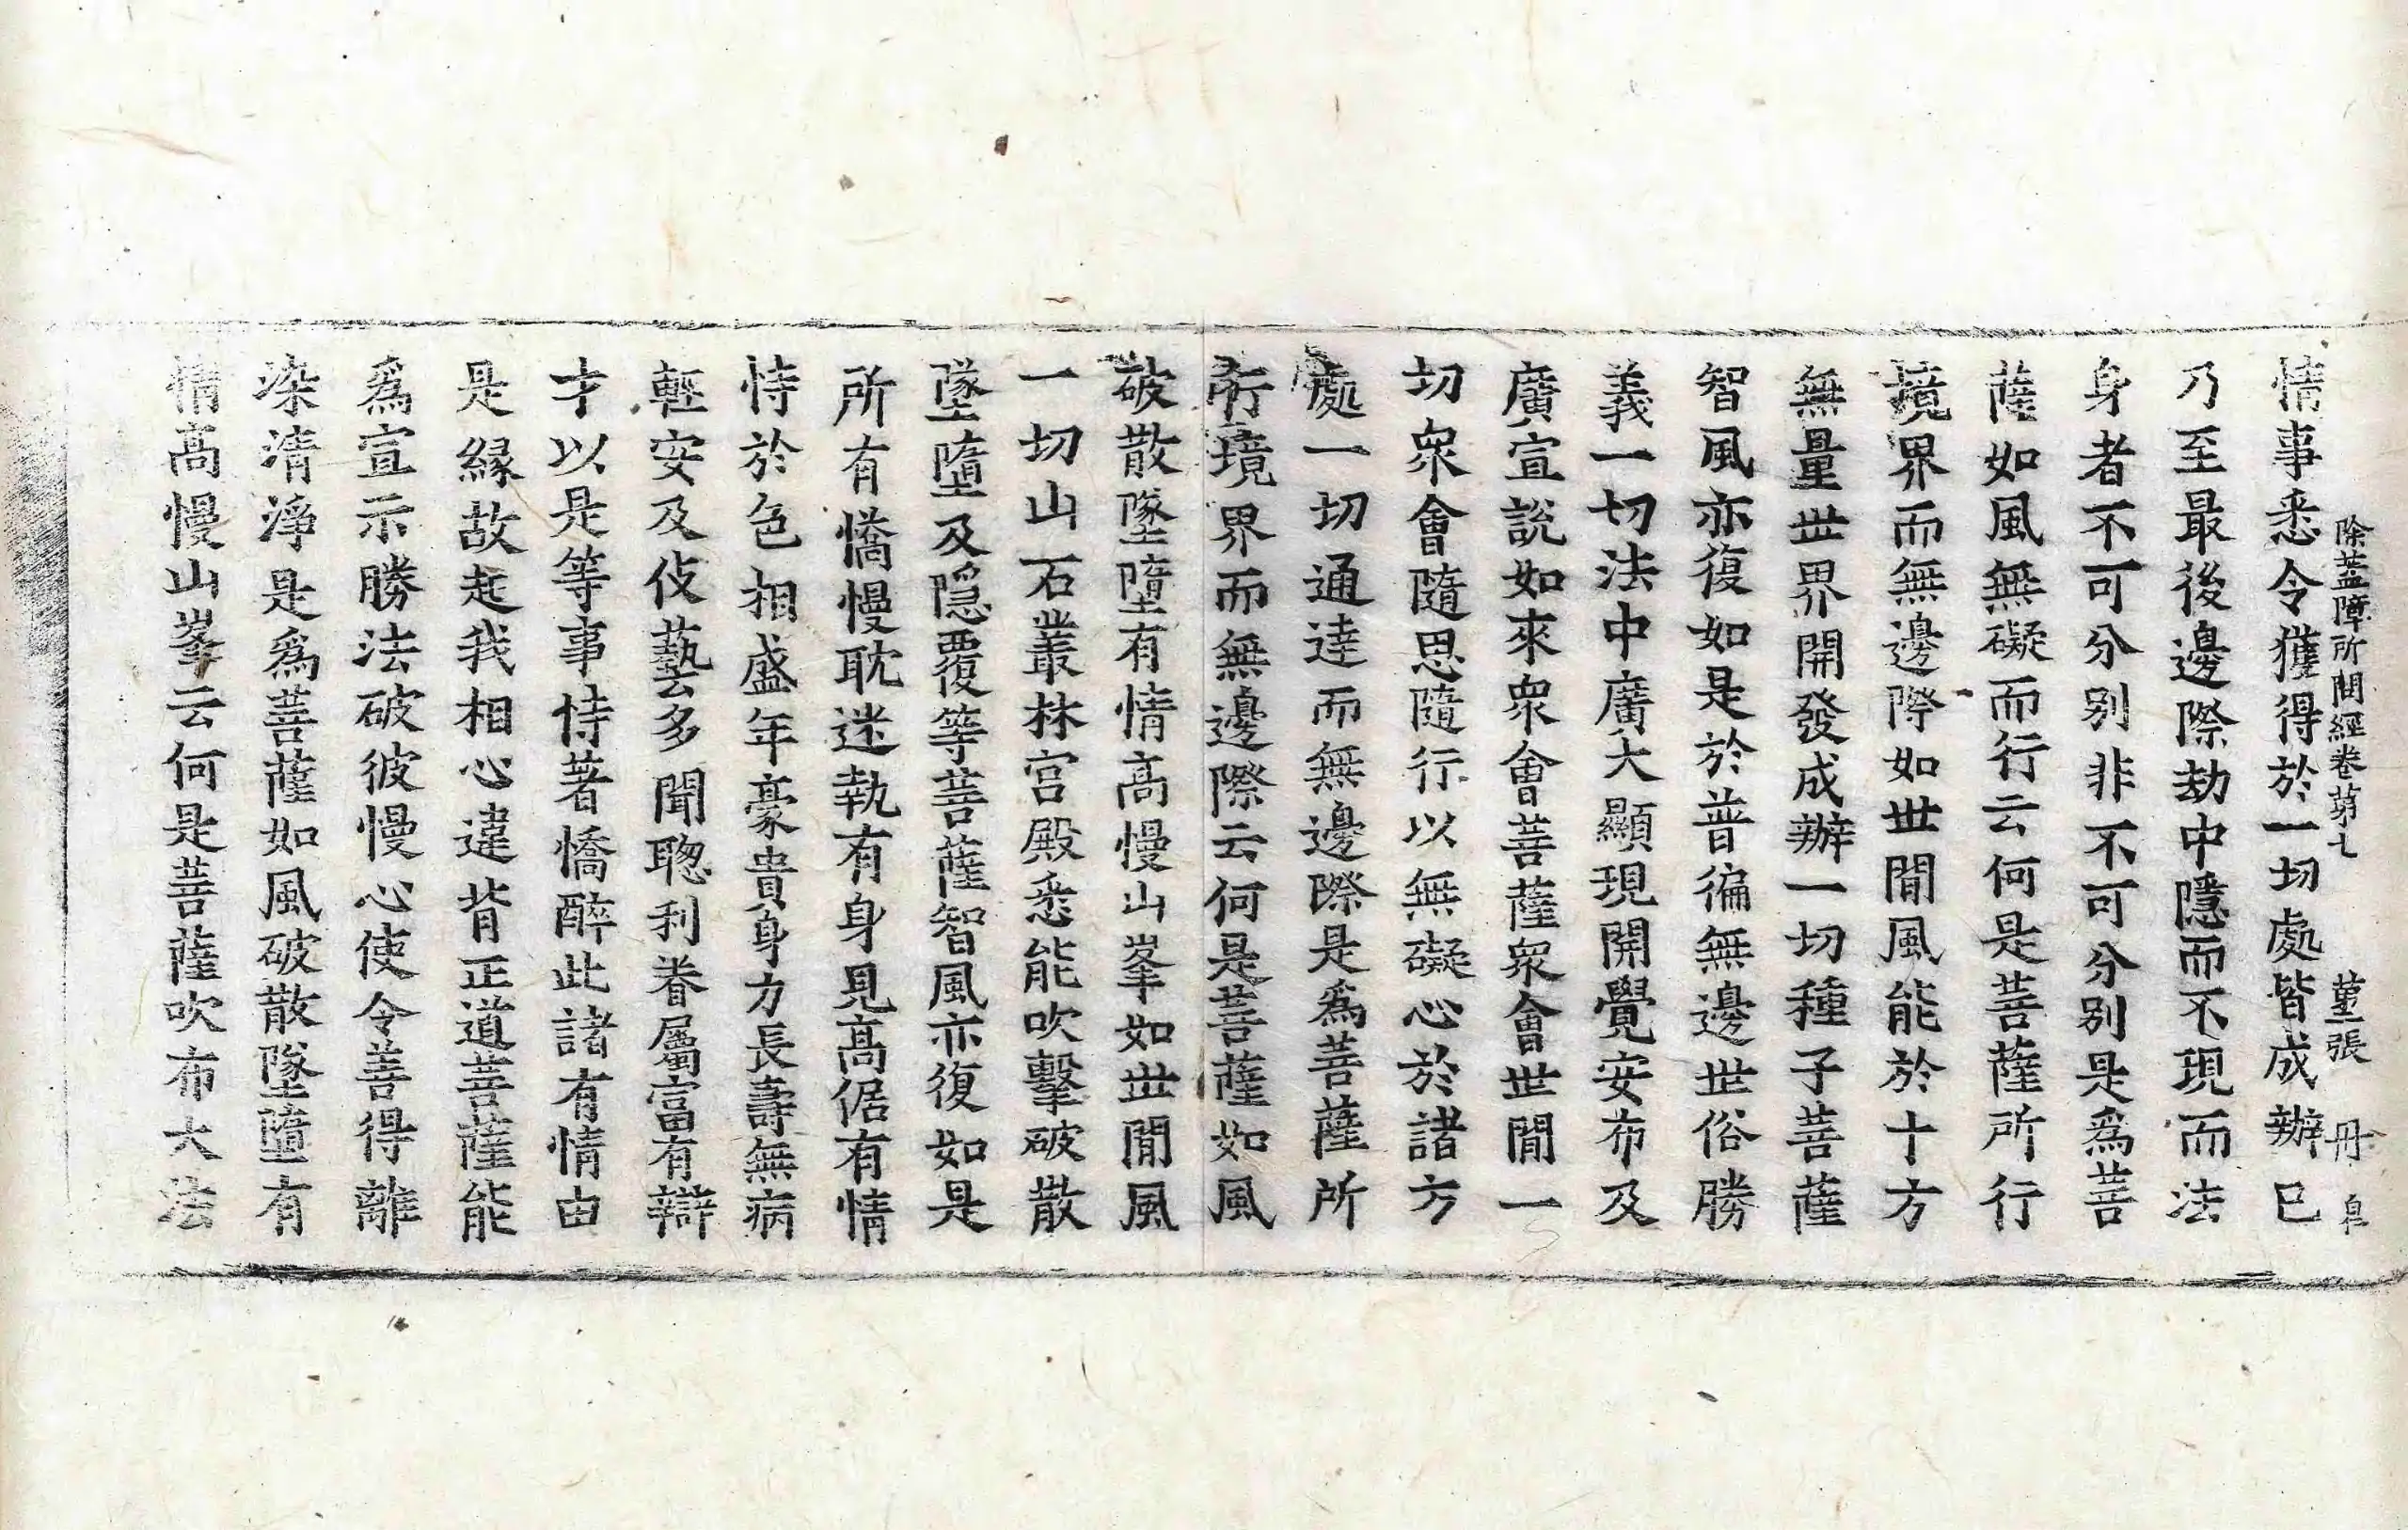 除蓋障所問經卷第七 張 丹 皐
情事悉令獲得於一切處皆成辦已
乃至最後邊際劫中隱而不現而法
身者不可分別非不可分別是爲菩
薩如風無礙而行云何是菩薩所行
境界而無邊際如世間風能於十方
無量世界開發成辦一切種子菩薩
智風亦復如是於普徧無邊世俗勝
義一切法中廣大顯現開覺安布及
廣宣說如來衆會菩薩衆會世間一
切衆會隨思隨行以無礙心於諸方
處一切通達而無邊際是爲菩薩所
行境界而無邊際云何是菩薩如風
破散墜墮有情高慢山峯如世間風
一切山石叢林宮殿悉能吹擊破散
墜墮及隱覆等菩薩智風亦復如是
所有憍慢耽迷執有身見高倨有情
恃於色相盛年豪貴身力長壽無病
輕安及伎藝多聞聦利眷屬富有辯
才以是等事恃著憍醉此諸有情由
是緣故起我相心違背正道菩薩能
爲宣示勝法破彼慢心使令善得離
染清淨是爲菩薩如風破散墜墮有
情高慢山峯云何是菩薩吹布大法